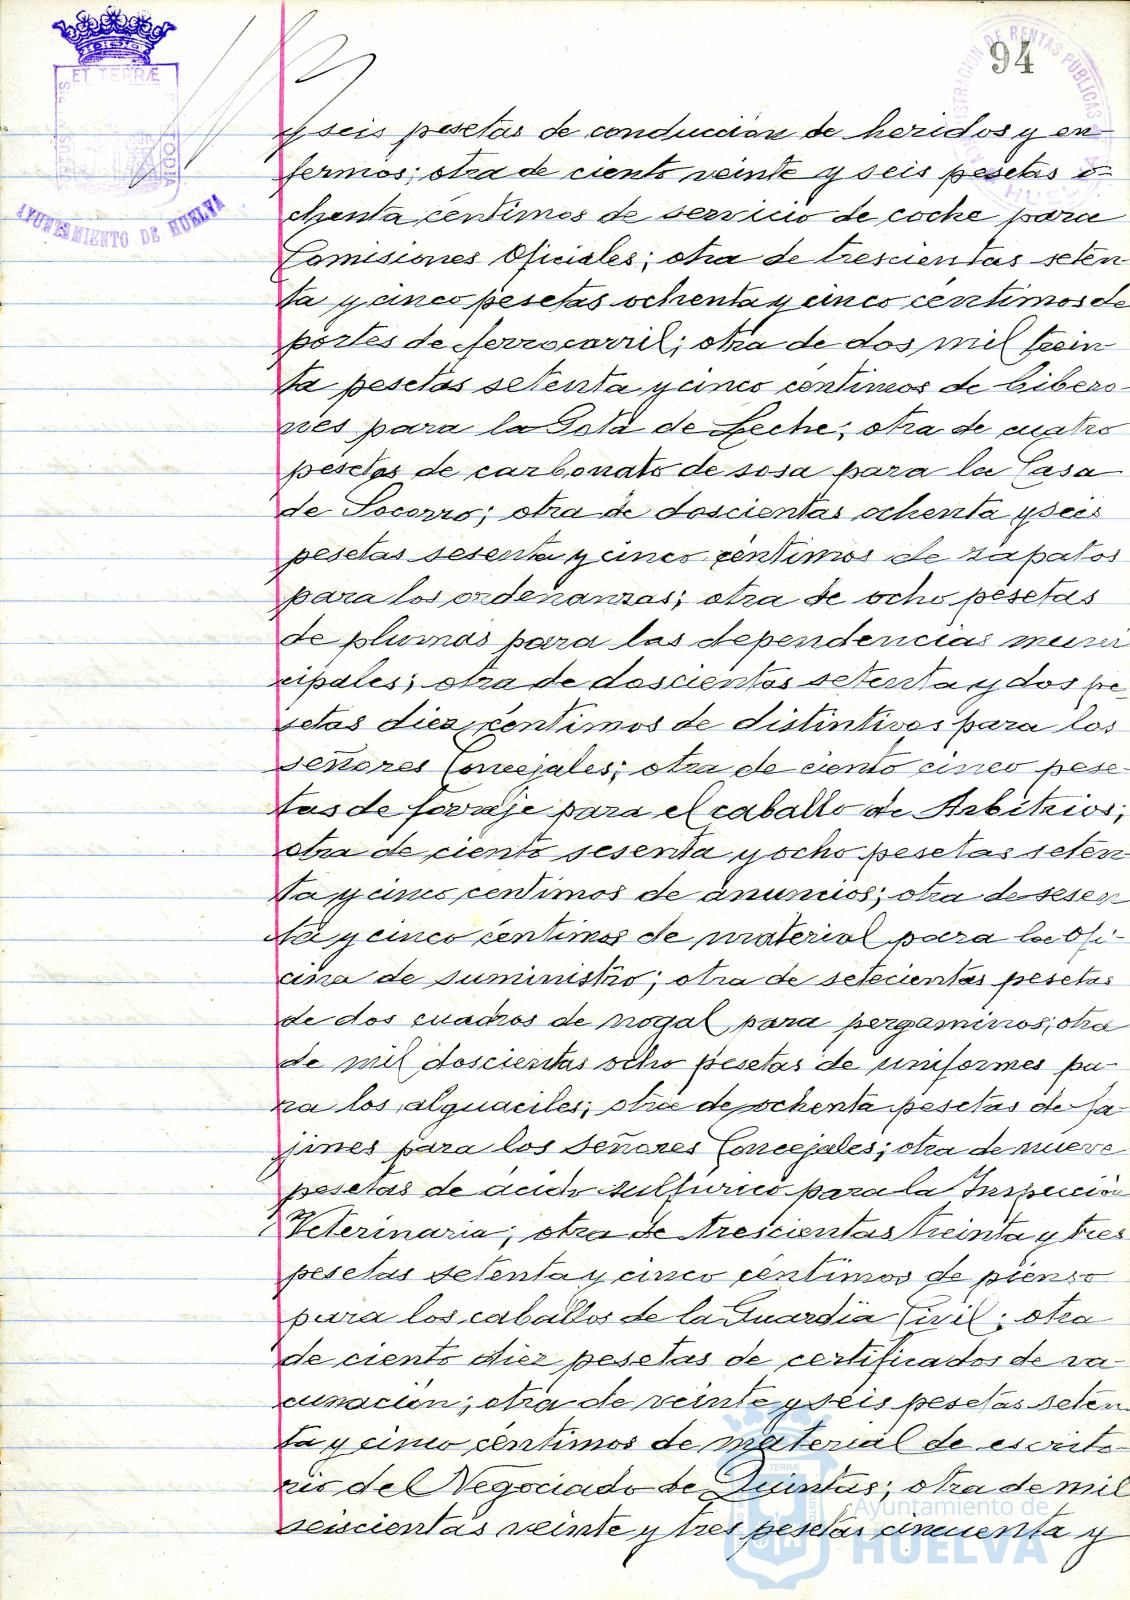 94
ET TERRÆ
AYUNTAMIENTO DE HUELVA
ADMINISTRACION DE RENTAS PUBLICAS
y seis pesetas de conducción de heridos y en-
fermos; otra de ciento veinte y seis pesetas o-
chenta céntimos de servicio de coche para
Comisiones Oficiales; otra de trescientas seten-
ta y cinco pesetas ochenta y cinco céntimos de
portes de ferrocarril; otra de dos mil trein-
ta pesetas setenta y cinco céntimos de bibero-
nes para la Gota de Leche; otra de cuatro
pesetas de carbonato de sosa para la Casa
de Socorro; otra de doscientas ochenta y seis
pesetas sesenta y cinco céntimos de zapatos
para los ordenanzas; otra de ocho pesetas
de plumas para las dependencias muni
cipales; otra de doscientas setenta y dos pe-
setas diez céntimos de distintivos para los
señores Concejales; otra de ciento cinco pese-
tas de forraje para el caballo de Arbitrios;
otra de ciento sesenta y ocho pesetas seten
ta y cinco centimos de anuncios; otra de sesen
ta y cinco céntimos de material para la Ofi-
cina de suministro; otra de setecientas pesetas
de dos cuadros de nogal para pergaminos; otra
de mil doscientas ocho pesetas de uniformes pa-
ra los alguaciles; otra de ochenta pesetas de fa-
jines para los Señores Concejales; otra de nueve
pesetas de ácido sulfúrico para la Inspección
Veterinaria; otra de trescientas treinta y tres
pesetas setenta y cinco céntimos de pienso
para los caballos de la Guardia Civil; otra
de ciento diez pesetas de certificados de va-
cunación; otra de veinte y seis pesetas seten
ta y cinco céntimos de material de escrito-
rio del Negociado de Quintas; otra de mil
seiscientas veinte y tres pesetas cincuenta y
Ayuntamiento de
HUELVA